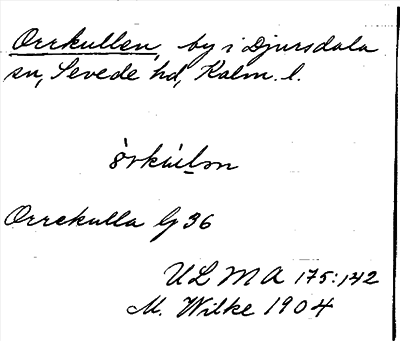 Orrkullen, by i Djursdala
sn, Sevede hd, Kalm. l.
Orrekulla Gj 36
ULMA 175:142
M. Wilke 1904